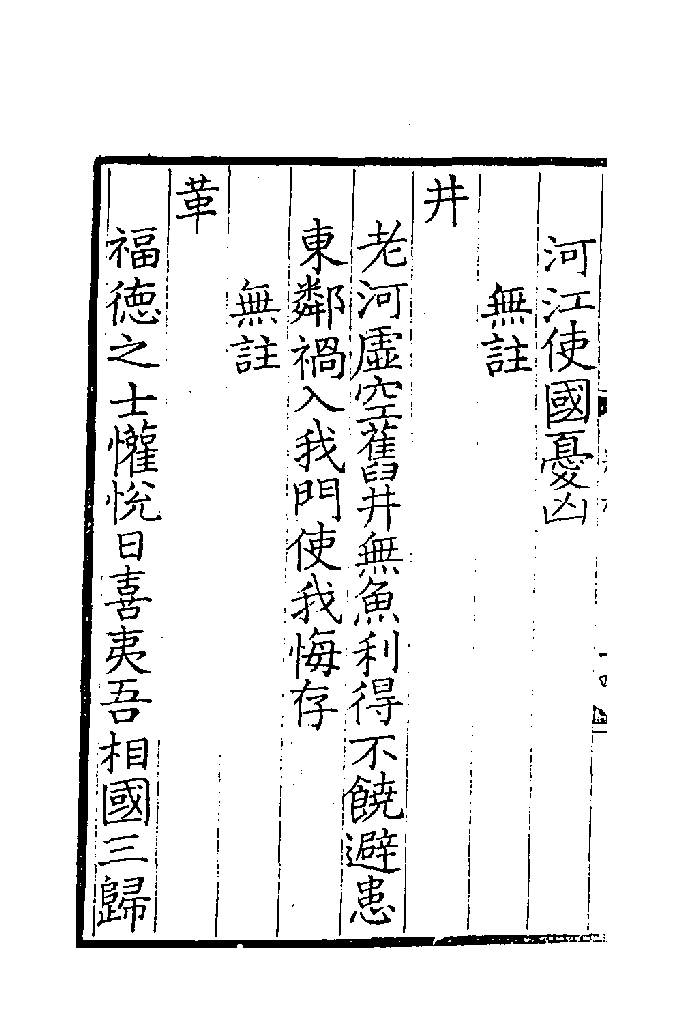 河江使國憂凶
無註
井
老河虛空舊井無魚利得不饒避患
東鄰禍入我門使我悔存
無註
革
福德之士懽悅日喜夷吾相國三歸